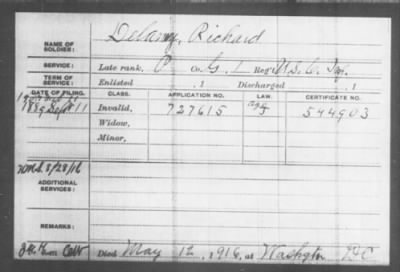 NAME OF SOLDIER: Delaney, Richard
SERVICE: Late rank, P Co. G, 1 Reg't U.S.C. Inf.
TERM OF SERVICE: Enlisted , 1 Discharged , 1
DATE OF FILING. CLASS. APPLICATION NO. LAW. CERTIFICATE NO.
1889 Sept 11 Invalid, 727615 544903
Widow,
Minor,
8/28/16
ADDITIONAL SERVICES:
REMARKS:
Died May 12, 1916, at Washgtn DC